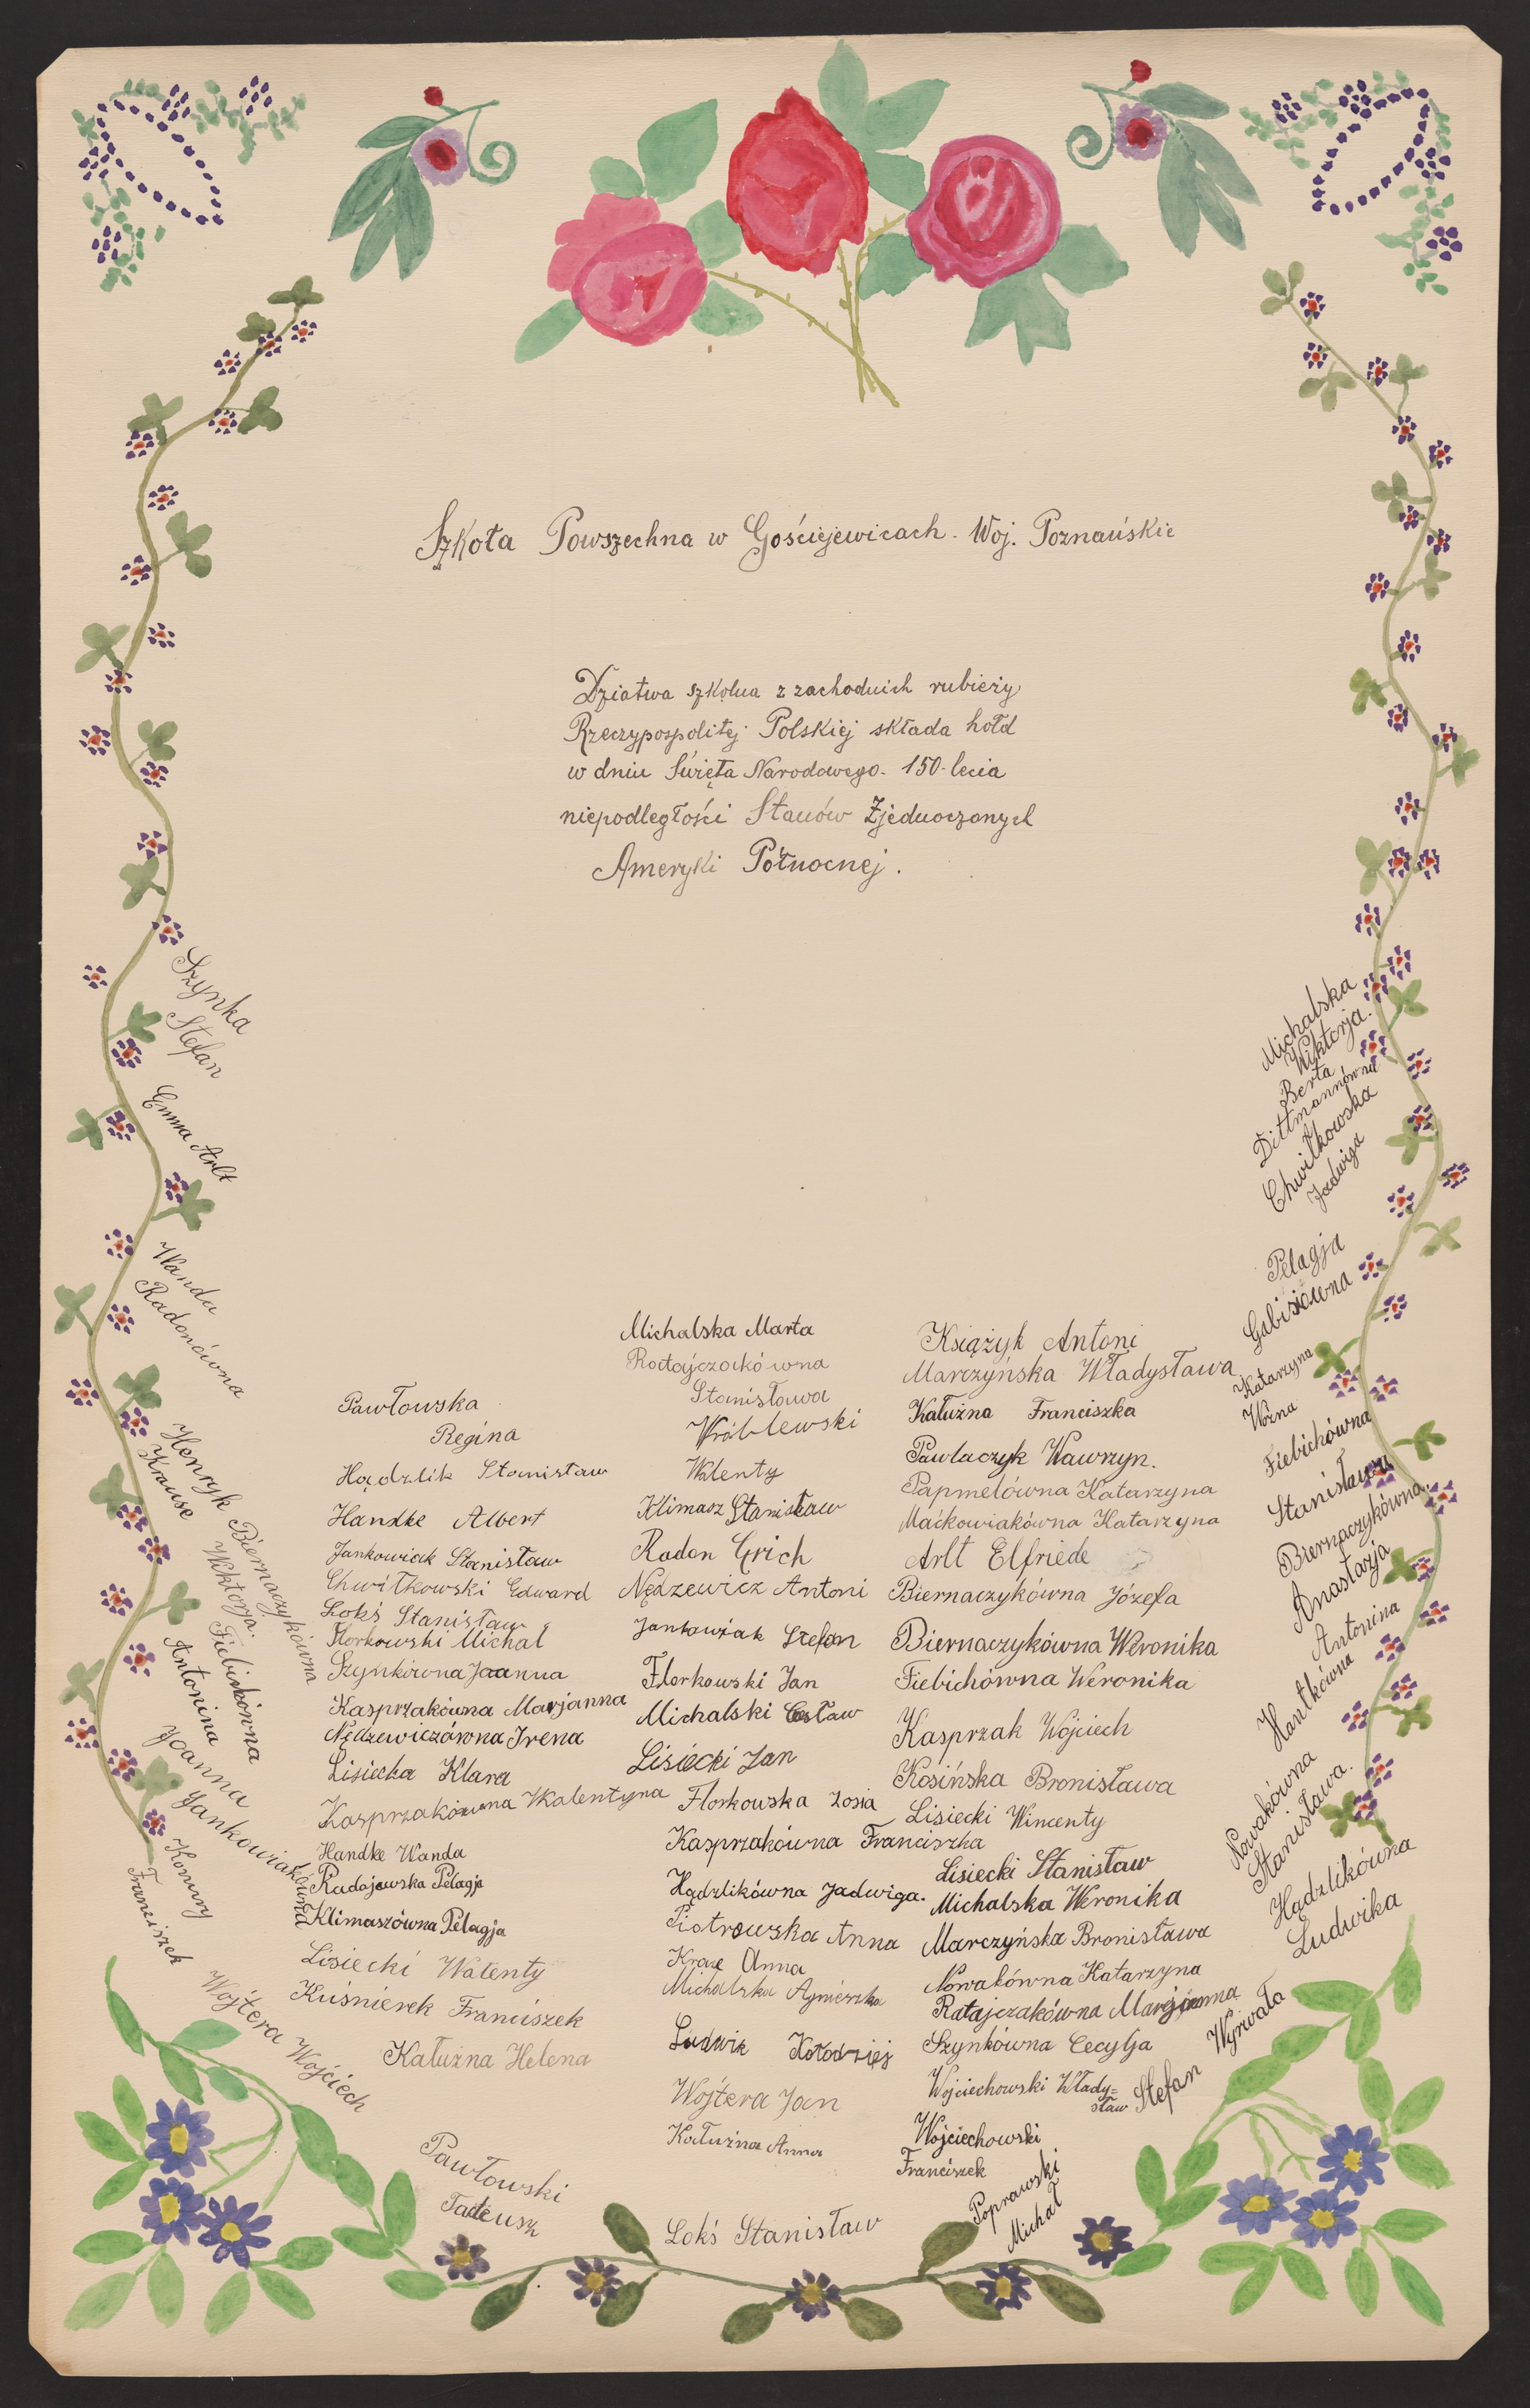 Szkoła Powszechna w Gościejewicach. Woj. Poznańskie
Dziatwa szkolna z zachodnich rubieży
Rzeczypospolitej Polskiej składa hołd
w dniu Święta Narodowego. 150-lecia
niepodległości Stanów Zjednoczonych
Ameryki Północnej.
Szynka
Stefan
Emma Arlt
Wanda
Radonówna
Henryk
Krause
Biernaczykówna
Wiktorja.
Fiebichówna
Antonina
Joanna
Jankowiakówna
Konury
Franciszek
Wojtera Wojciech
Pawłowska
Regina
Hądzlik Stanisław
Handke Albert
Jankowiak Stanisław
Chwiłkowski Edward
Lokś Stanisław
Florkowski Michał
Szynkówna Joanna
Kasprzakówna Marjanna
Nędzewiczówna Irena
Lisiecka Klara
Kasprzakówna Walentyna
Handke Wanda
Radajewska Pelagja
Klimaszówna Pelagja
Lisiecki Walenty
Kuśnierek Franciszek
Kałużna Helena
Pawłowski
Tadeusz
Michalska Marta
Ratajczakówna
Stanisława
Wróblewski
Walenty
Klimasz Stanisław
Radon Erich
Nędzewicz Antoni
Jankowiak Stefan
Florkowski Jan
Michalski Czesław
Lisiecki Jan
Florkowska Zosia
Kasprzakówna Franciszka
Hądzlikówna Jadwiga.
Piotrowska Anna
Anna
Michalska Agnieszka
Ludwik Kołodziej
Wojtera Jan
Kałużna Anna
Lokś Stanisław
Książyk Antoni
Marczyńska Władysława
Kałużna Franciszka
Pawlaczyk Wawrzyn.
Papmelówna Katarzyna
Maćkowiakówna Katarzyna
Arlt Elfriede
Biernaczykówna Józefa
Biernaczykówna Weronika
Fiebichówna Weronika
Kasprzak Wojciech
Kosińska Bronisława
Lisiecki Wincenty
Lisiecki Stanisław
Michalska Weronika
Marczyńska Bronisława
Nowakówna Katarzyna
Ratajczakówna Marjanna
Szynkówna Cecylja
Wojciechowski Włady=
sław
Wojciechowski
Franciszek
Poprawski
Michał
Stefan Wyrwała
Michalska
Wiktorja.
Berta
Dittmannówna
Chwiłkowska
Jadwiga
Pelagja
Gabisiówna
Katarzyna
Woźna
Fiebichówna
Stanisława
Biernaczykówna.
Anastazja
Antonina
Hantkówna
Nowakówna
Stanisława.
Hądzlikówna
Ludwika